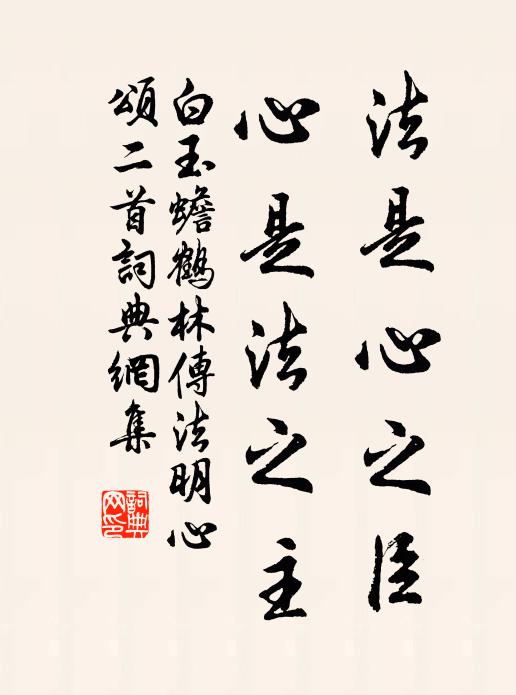 法是心之臣
心是法之主
白玉蟾鶴林傳法明心
頌二首詞典網集
詞典
网印